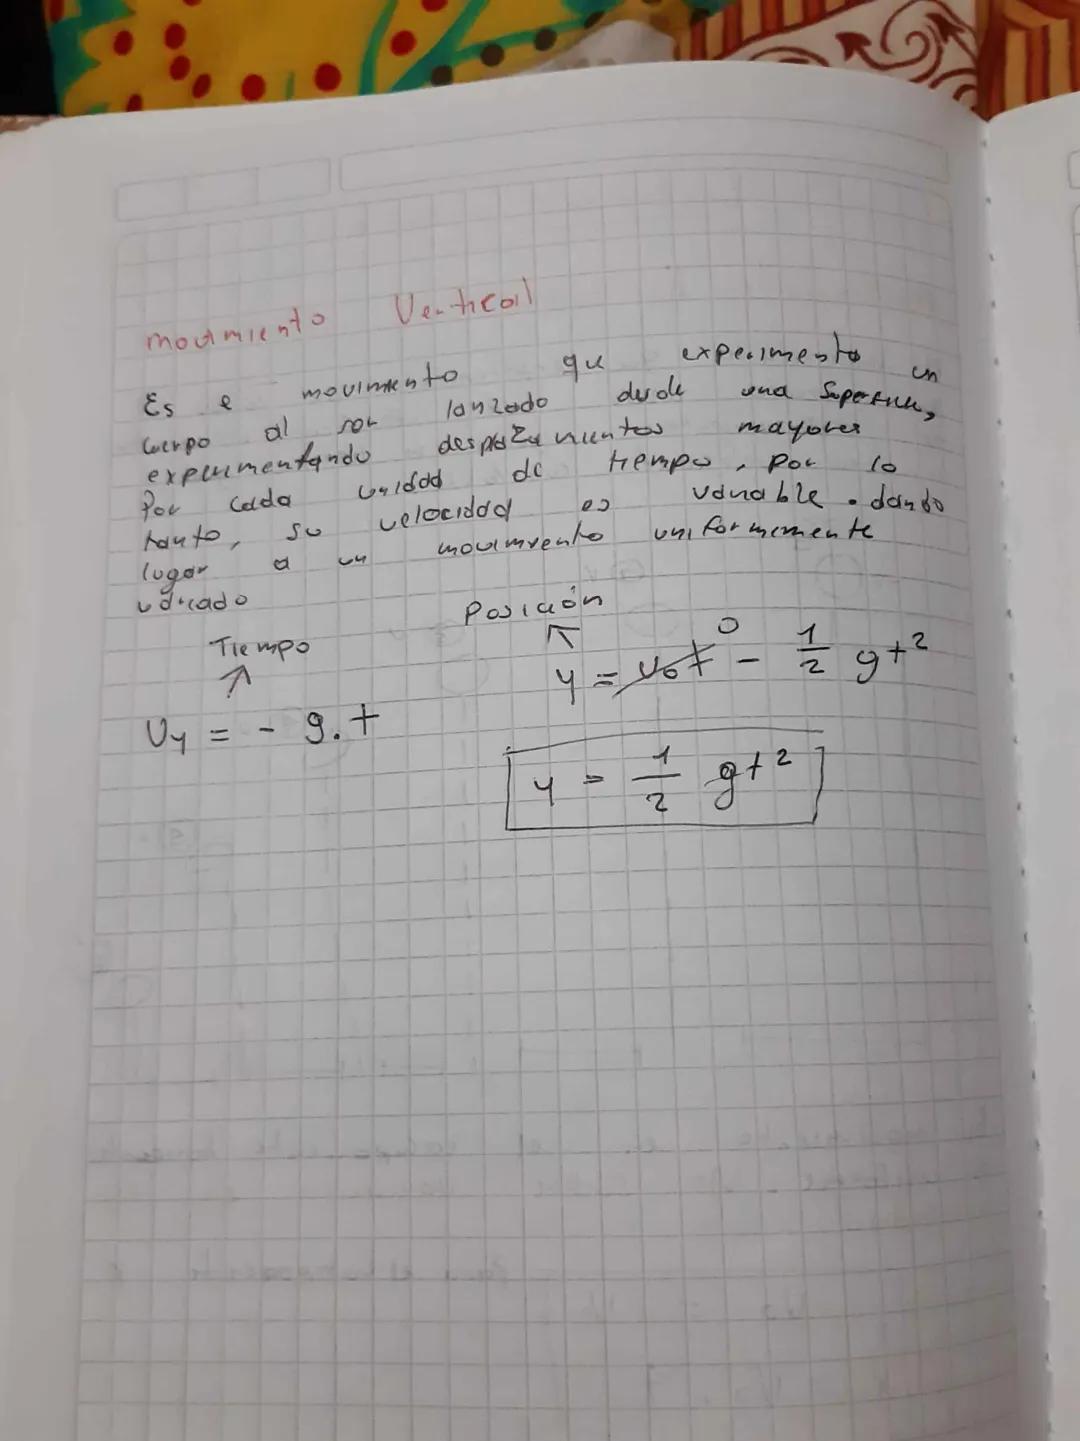 movimiento Vertical
Es e movimiento que experimenta un
cuerpo al ser lanzado desde una superficie,
experimentando desplazamientos mayores
Por cada unidad de tiempo, por lo
tanto, su velocidad es variable. dando
lugar a un movimiento uniformemente
variado
Tiempo
Vy = - g.t
Posición
y = v₀t 0 - 1/2 gt²
y = 1/2 gt²